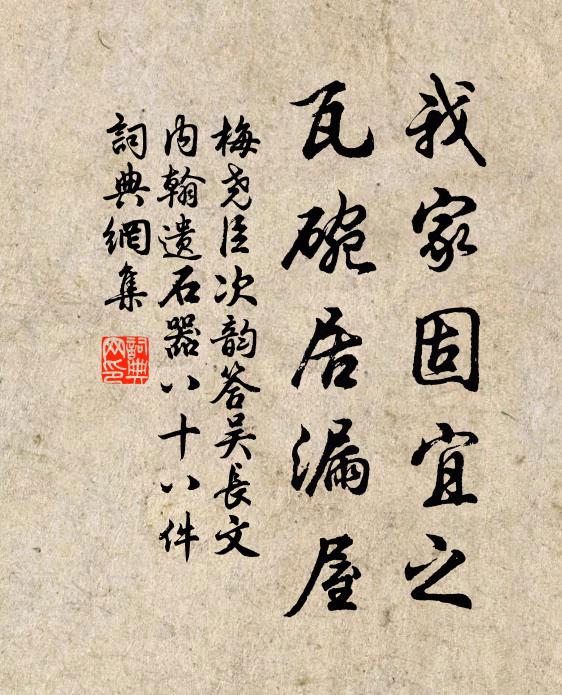 我家固宜之
瓦碗居漏屋
梅尧臣次韵答吴長文
内翰遗石器八十八件
詞典網集
詞典网印